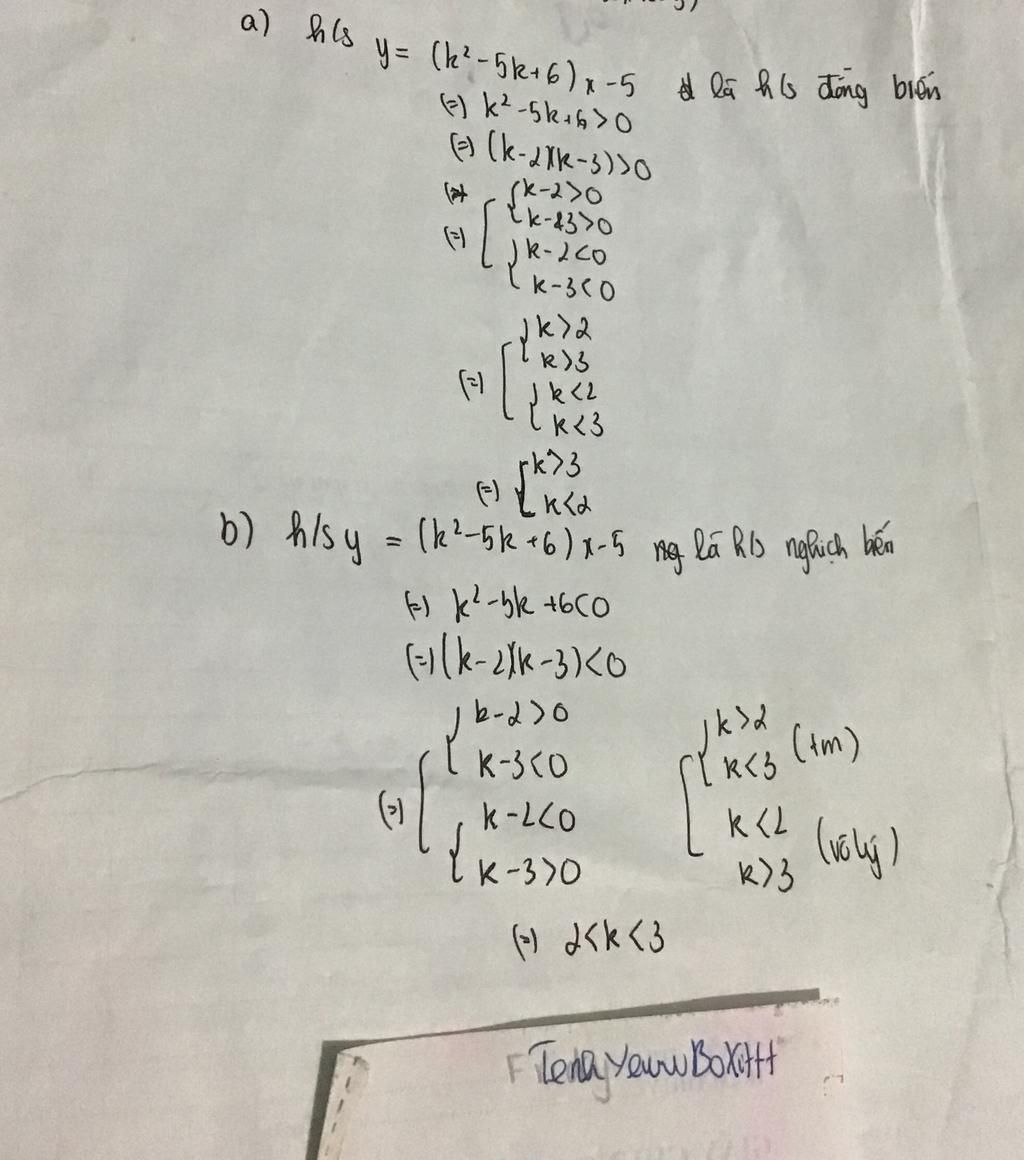 a) h/s y = (k² - 5k + 6) x - 5 là h/s đồng biến
(=) k² - 5k + 6 > 0
(=) (k - 2)(k - 3) > 0
(=) [ { k - 2 > 0
k - 3 > 0
{ k - 2 < 0
k - 3 < 0
(=) [ { k > 2
k > 3
{ k < 2
k < 3
(=) [ k > 3
k < 2
b) h/s y = (k² - 5k + 6) x - 5 là h/s nghịch bến
(=) k² - 5k + 6 < 0
(=) (k - 2)(k - 3) < 0
(=) [ { k - 2 > 0
k - 3 < 0
{ k - 2 < 0
k - 3 > 0
[ { k > 2
k < 3 (tm)
k < 2
k > 3 (vô lý)
(=) 2 < k < 3